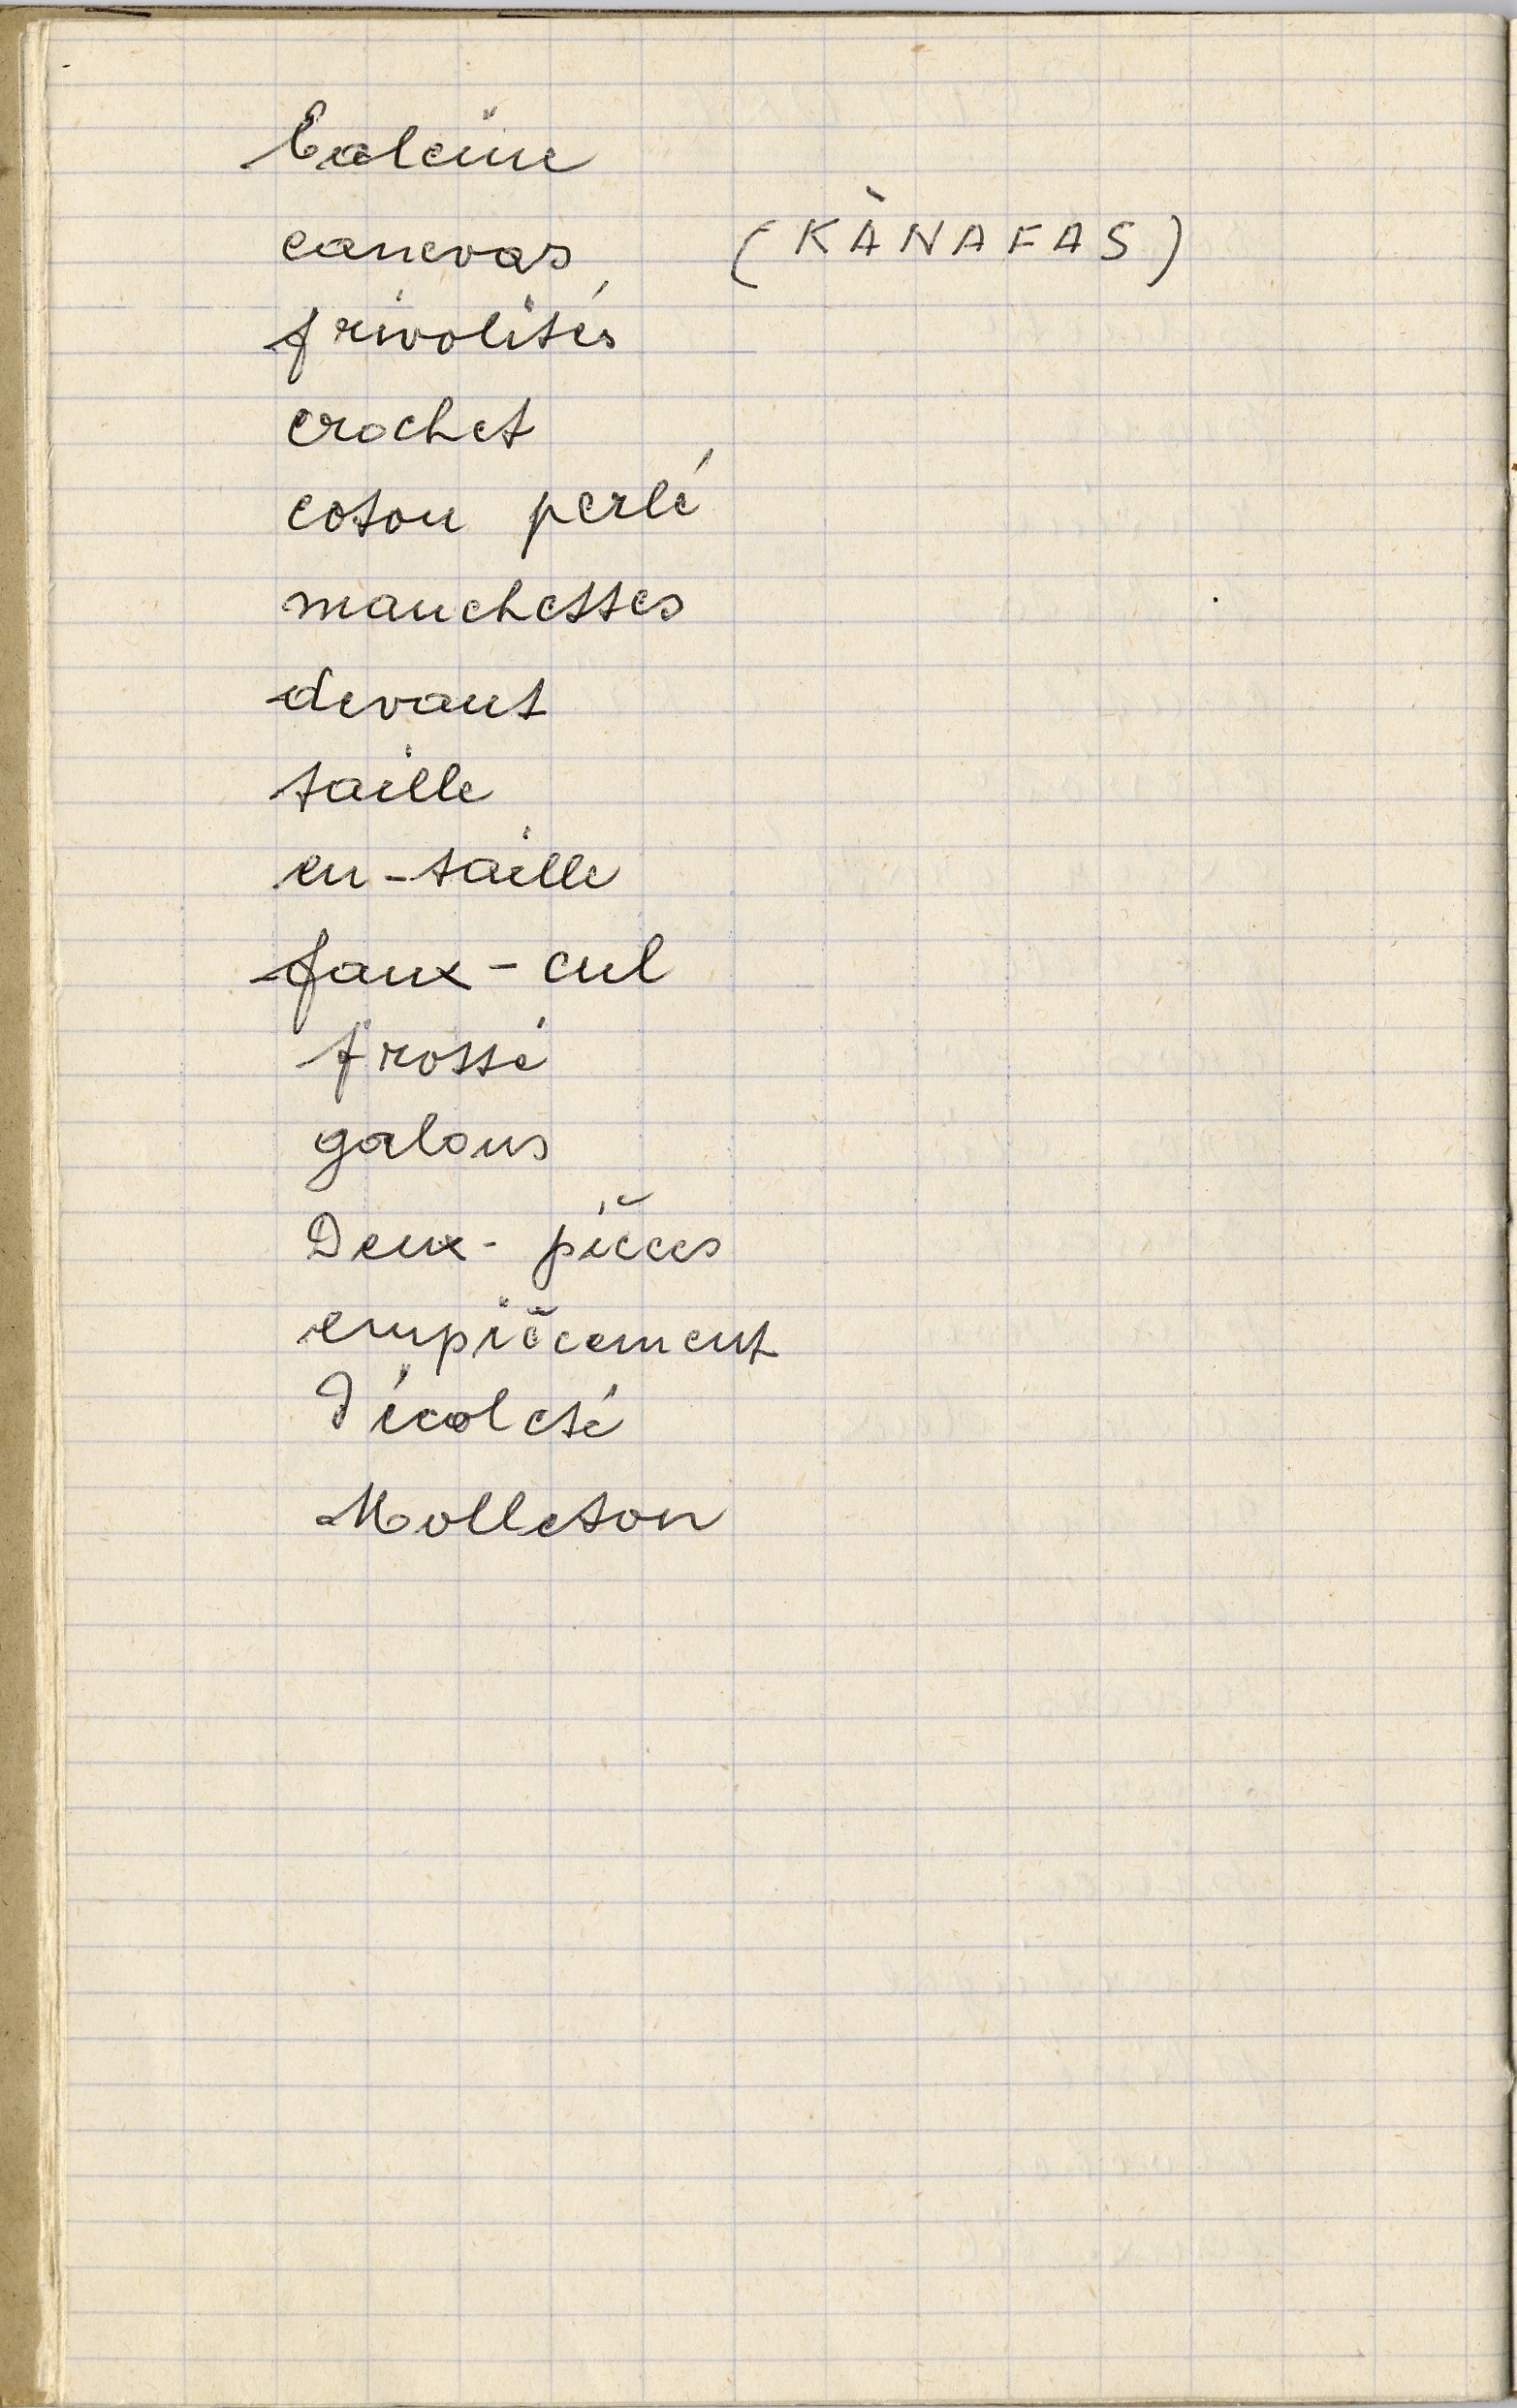 Baleine
canevas (KÀNAFAS)
frivolités
crochet
coton perlé
manchettes
devant
taille
en-taille
faux-cul
frossé
galons
Deux-pièces
empiècement
Décolté
Molleton